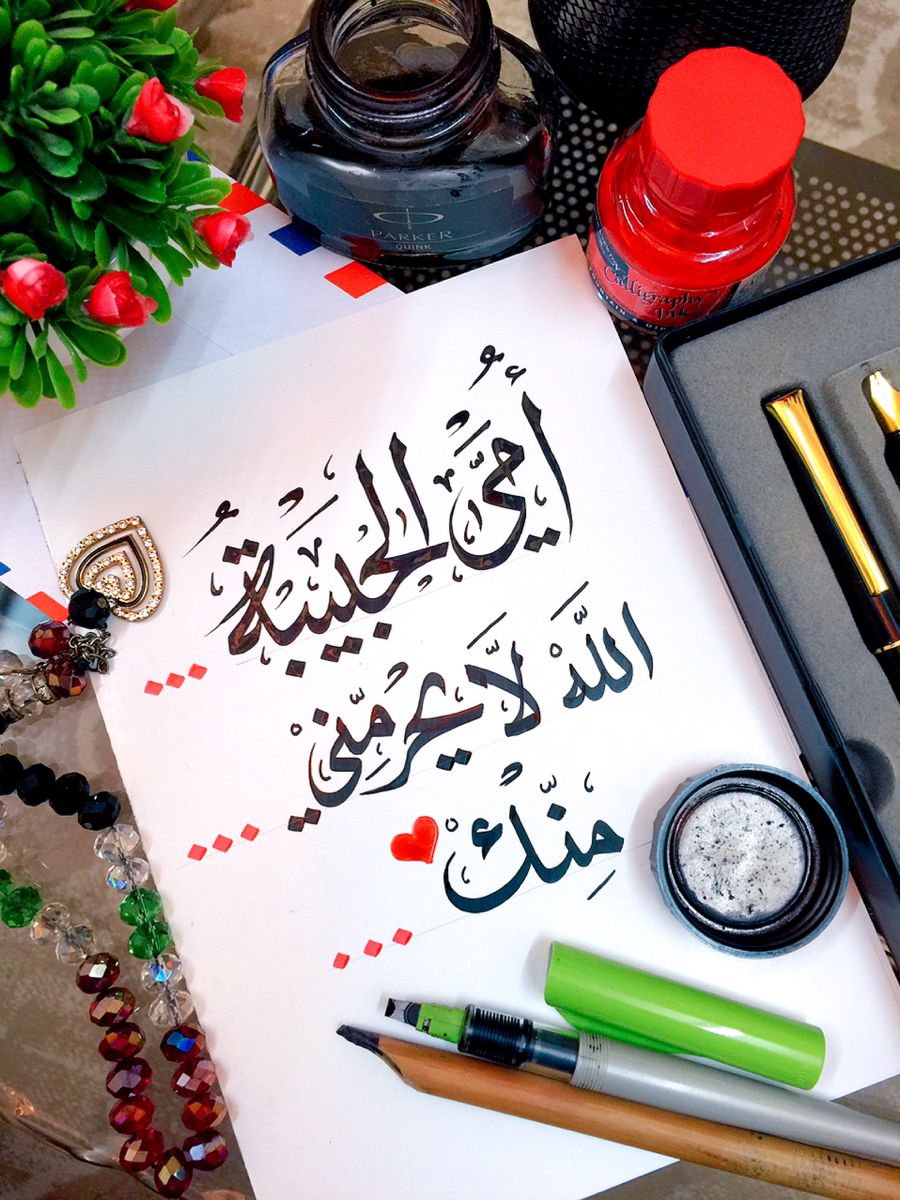 PARKER
QUINK
Calligraphy
Ink
أُمّي الحَبيبَةُ...
اللَّهْ لَا يَحْرِمْنِّي...
مِنِّكْ ...